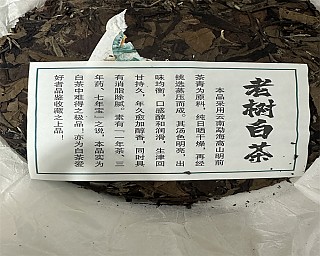 老树白茶
本品采用云南勐海高山明前
茶青为原料，纯日晒干燥，再经
统选蒸压而成。其汤色明亮，出
味均衡，口感醇和润滑，生津回
甘持久，年久愈加醇香，同时具
有消脂除腻。素有「一年茶、三
年药、七年宝」之说，本品实为
白茶中难得之极品！亦为白茶爱
好者品鉴收藏之上品！